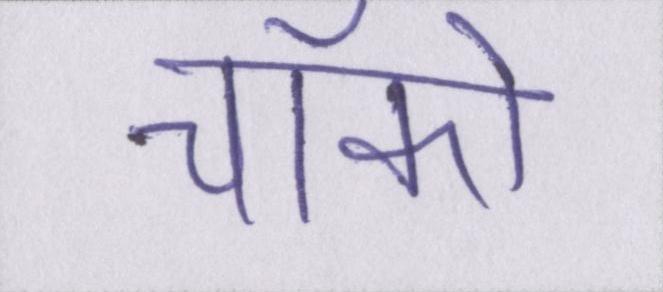 चॉको